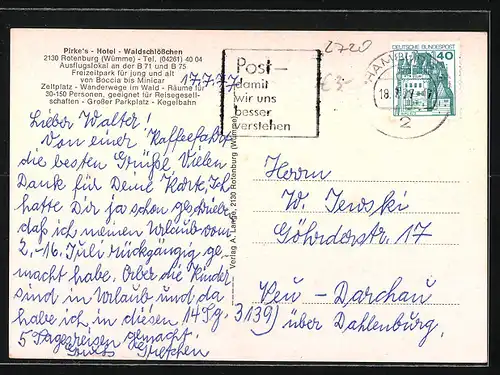 Pirke's - Hotel - Waldschlößchen
2130 Rotenburg (Wümme) - Tel. (04261) 40 04
Ausflugslokal an der B 71 und B 75
Freizeitpark für jung und alt
von Boccia bis Minicar
Zeltplatz - Wanderwege im Wald - Räume für
30-150 Personen, geeignet für Reisegesell-
schaften - Großer Parkplatz - Kegelbahn
17.7.77
Lieber Walter!
Von einer Kaffeefahrt
die besten Grüße. Vielen
Dank für Deine Karte. Ich
hatte Dir ja schon geschrieben
daß ich meinen Urlaub vom
2.-16. Juli rückgängig ge-
macht habe. Aber die Kinder
sind in Urlaub und da
habe ich in diesen 14 Tg.
5 Tagesreisen gemacht.
Gruß Gretchen
Verlag A. Lange, 2130 Rotenburg (Wümme)
2720
€3-
Post-
damit
wir uns
besser
verstehen
HAMBURG
18.
2
DEUTSCHE BUNDESPOST
40
Herrn
W. Jewski
Göhrderstr. 17
Neu-Darchau
3139) über Dahlenburg.